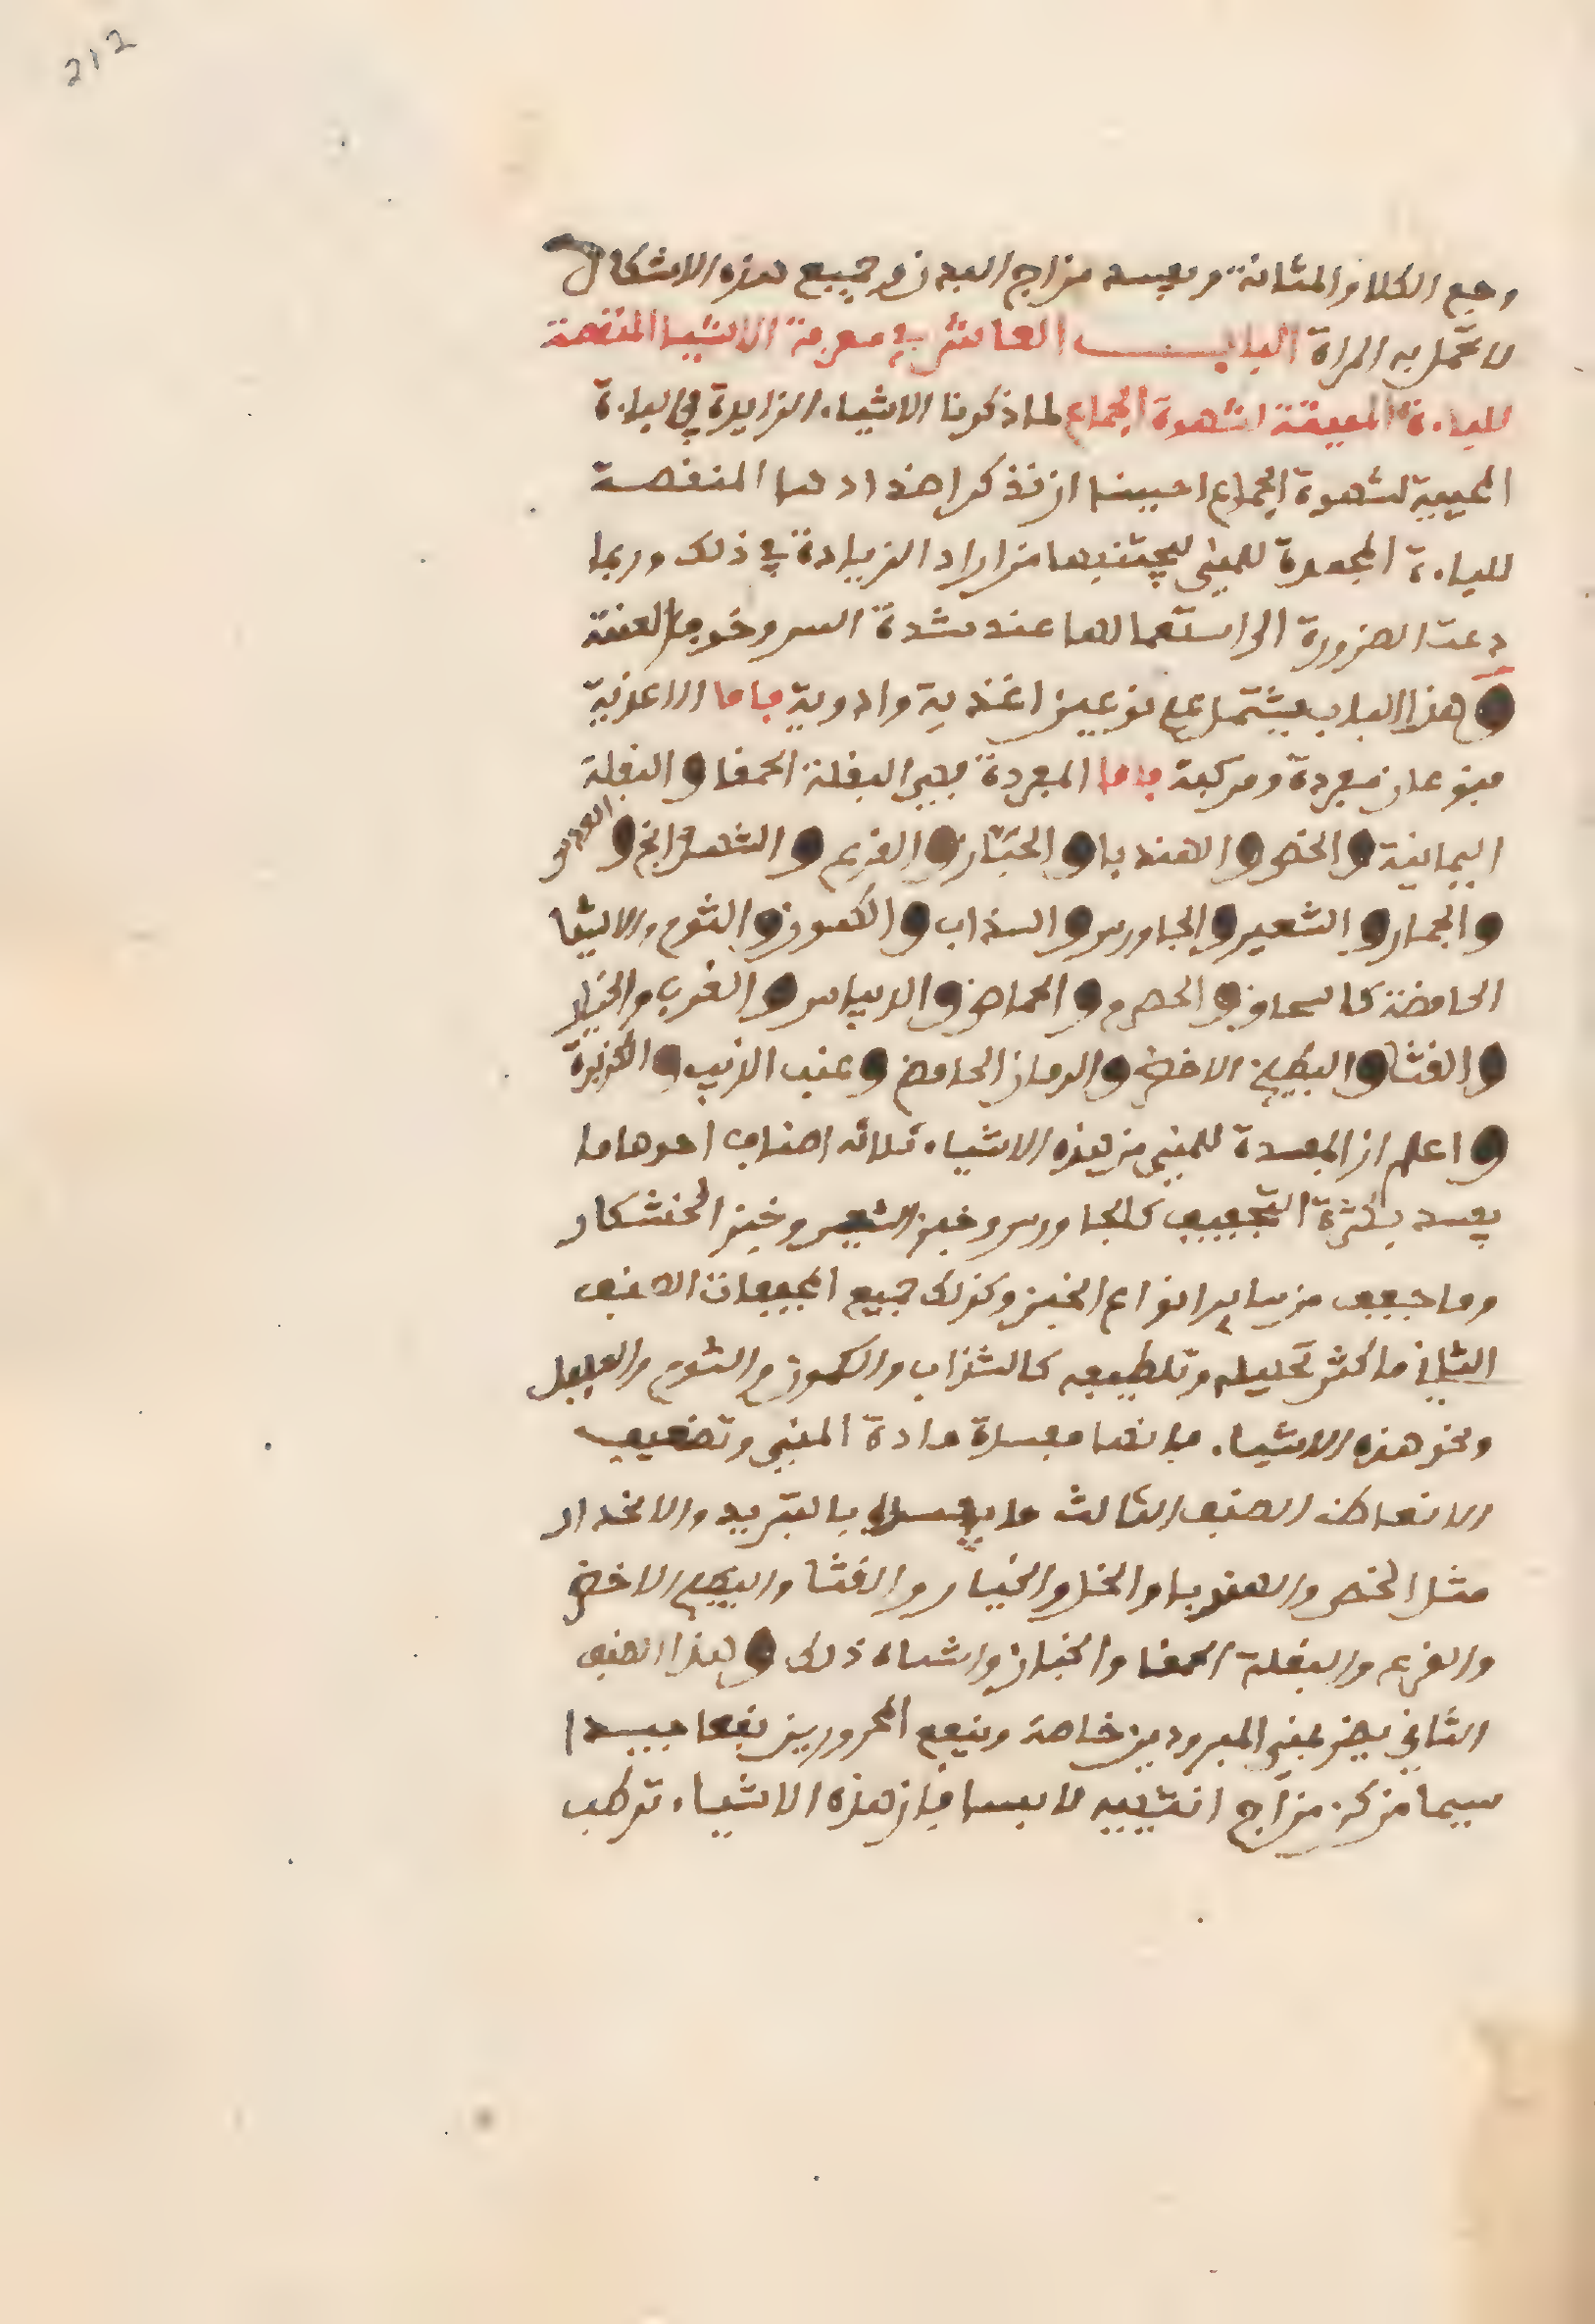 212
وجع الكلا والمثانة ويفسد مزاج البدن وجميع هذه الاشكال
لا تحمل به المراة الباب العاشر في معرفة الاشيا المنقصة
للباءة المميتة لشهوة الجماع لما ذكرنا الاشياء الزايدة في الباءة
المحيية لشهوة الجماع احببنا ان نذكر اضدادها المنقصة
للباءة المجمدة للمني ليجتنبها من اراد الزيادة في ذلك وربما
دعت الضرورة الى استعمالها عند شدة وخوف العنت
وهذا الباب يشتمل على نوعين اغذية وادوية فاما الاغذية
فنوعان مفردة ومركبة فاما المفردة فهي البقلة الحمقا والبقلة
اليمانية والخس والهندبا والخبّاز والقرع والشهدانج والعدس
والجمار والشعير والجاورس والسذاب والكمون والثوم والاشيا
الحامضة كالسماق والحصرم والحماض والريباس والخيار
والقثا والبطيخ الاخضر والرمان الحامض وعنب الذيب والكزبرة
واعلم ان المفسدة للمني من هذه الاشياء ثلاثة اصناف احدها ما
يفسد بكثرة التجفيف كالجاورس وخبز الشعير وخبز الخشكار
وما جفف من ساير انواع الخبز وكذلك جميع المجففات الصنف
الثاني ما كثر تحليله وتلطيفه كالشذاب والكمون والثوم والفلفل
ونحو هذه الاشياء فانها مفسدة مادة المني وتضعيف
الانعاظ الصنف الثالث ما يفسد بالتبريد والاخدار
مثل الخس والهندبا والخل والخيار والقثا والبطيخ الاخضر
والقرع والبقلة الحمقا والخباز واشباه ذلك وهذا الصنف
الثاني يضر بمني المبرودين خاصة وينفع المحرورين نفعا جيدا
سيما من كن مزاج انثييه لا يسا فان هذه الاشياء ترطب